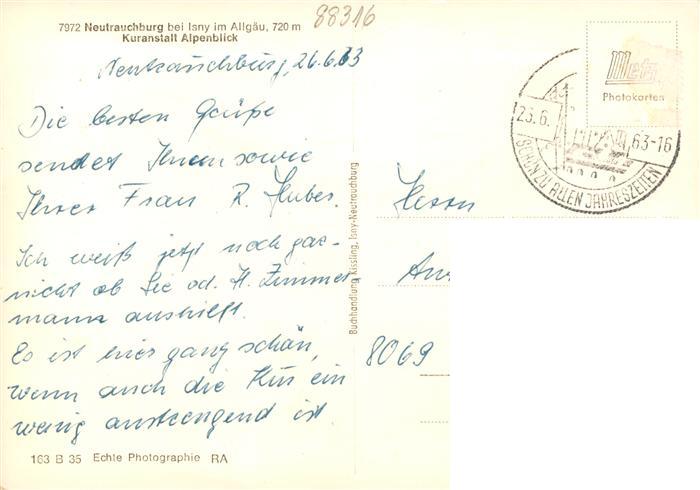 88316
7972 Neutrauchburg bei Isny im Allgäu, 720 m
Kuranstalt Alpenblick
Neutrauchburg, 26.6.63
Die besten Grüße
sendet Ihnen sowie
Ihrer Frau R. Huber.
Ich weiß jetzt noch gar-
nicht ob Sie od. H. Zimmer
mann aushilft.
Es ist hier ganz schön,
wenn auch die Kur ein
wenig anstrengend ist.
163 B 35 Echte Photographie RA
Buchhandlung Kissling, Isny-Neutrauchburg
Metz
Photokarten
26.6.63-16
SCHÖN ZU ALLEN JAHRESZEITEN
Herrn
8069